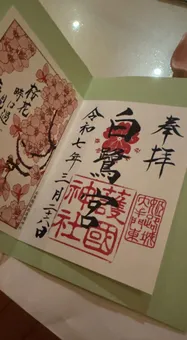 奉拝
姫路城
大手門東
白鷺宮
護國
神社
令和七年三月二十八日